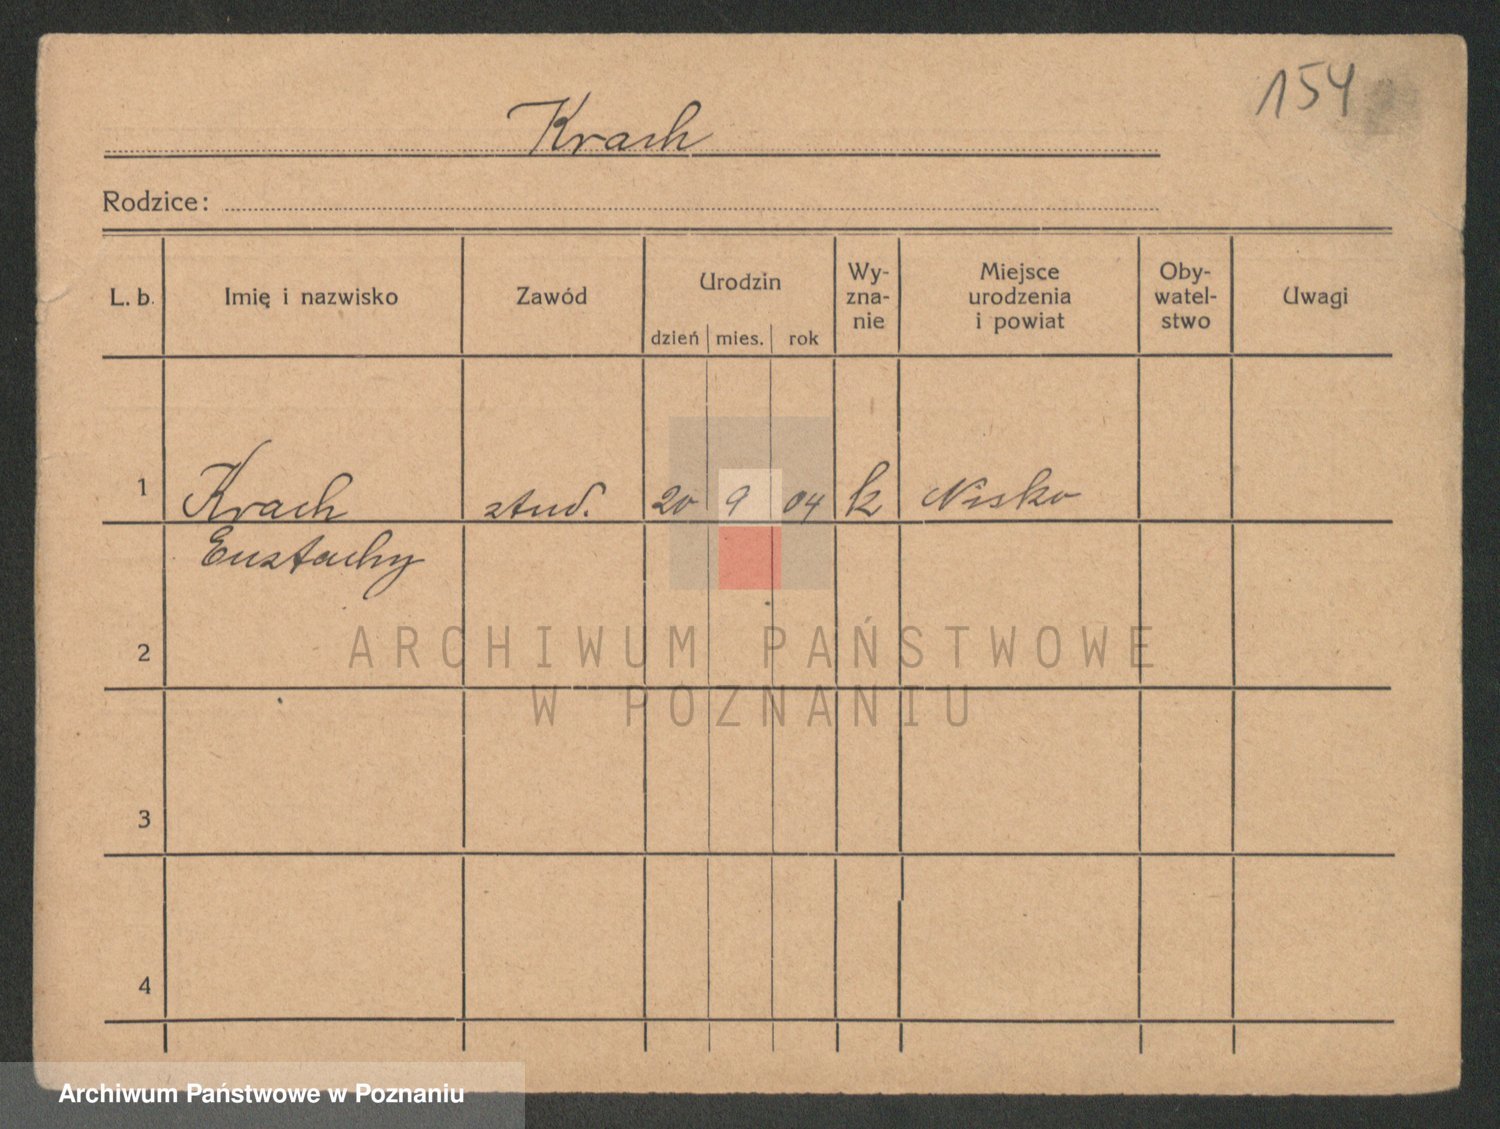 154
Krach
Rodzice:
L. b. Imię i nazwisko Zawód Urodzin dzień mies. rok Wy-zna-nie Miejsce urodzenia i powiat Oby-watel-stwo Uwagi
1 Krach stud. 20 9 04 k Nisko
Eustachy
2
ARCHIWUM PAŃSTWOWE
W POZNANIU
3
4
Archiwum Państwowe w Poznaniu